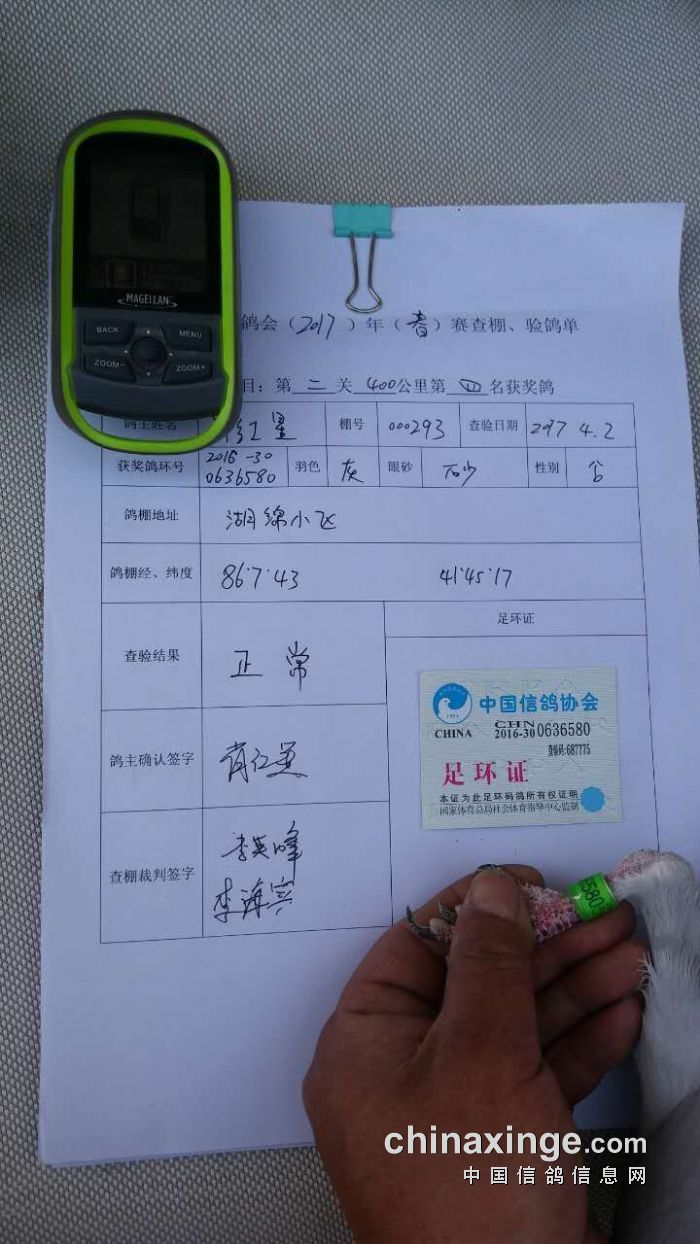 MAGELLAN
BACK
MENU
ZOOM-
ZOOM+
鸽会（2017）年（春）赛查棚、验鸽单
目：第二关400公里第四名获奖鸽
鸽主姓名 红星 棚号 000293 查验日期 2017 4.2
获奖鸽环号 2016-30 0636580 羽色 灰 眼砂 石沙 性别 公
鸽棚地址 湖绵小区
鸽棚经、纬度 86°7'43 41°45'17
足环证
查验结果 正常
中国信鸽协会
CHINA CHN 2016-30 0636580
查编码:687775
足环证
本证为此足环码鸽所有权证明
国家体育总局社会体育指导中心监制
鸽主确认签字 肖红星
查棚裁判签字 李英峰
李海宾
chinaxinge.com
中国信鸽信息网